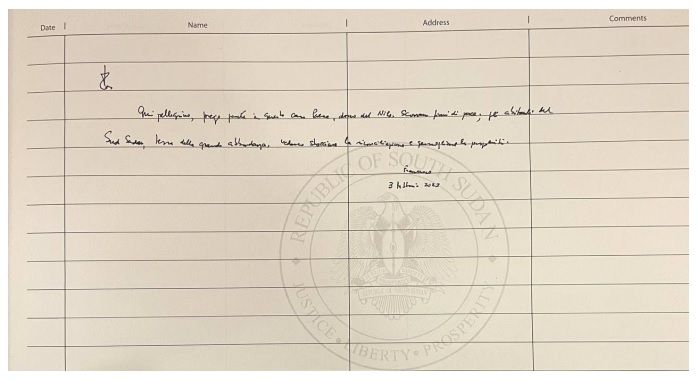 Date Name Address Comments
Qui pellegrino, prego perché in questo caro Paese, dono del Nilo, scorrano fiumi di pace; gli abitanti del
Sud Sudan, terra della grande abbondanza, vedano sbocciare la riconciliazione e germogliare la prosperità.
Francesco
3 febbraio 2023
REPUBLIC OF SOUTH SUDAN
JUSTICE • LIBERTY • PROSPERITY